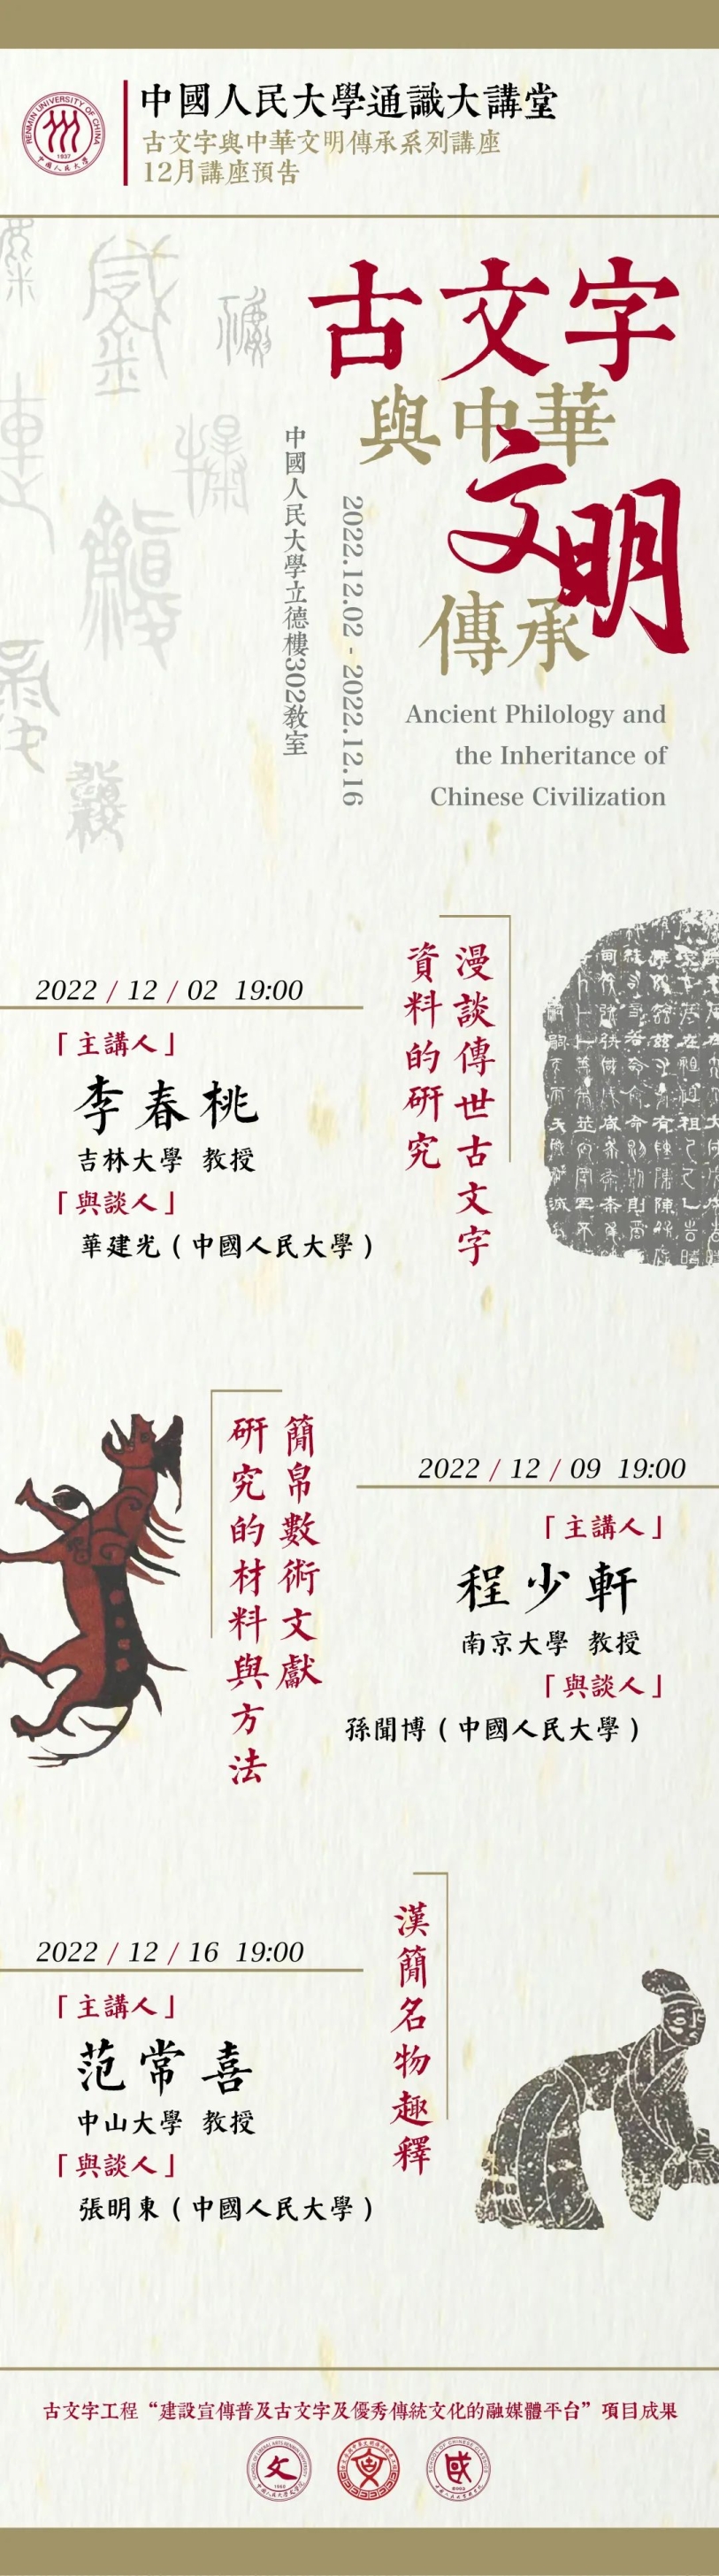 RENMIN UNIVERSITY OF CHINA
1937
中國人民大學
中國人民大學通識大講堂
古文字與中華文明傳承系列講座
12月講座預告
古文字
與中華
文明
傳承
2022.12.02 - 2022.12.16
中國人民大學立德樓302教室
Ancient Philology and
the Inheritance of
Chinese Civilization
漫談傳世古文字
資料的研究
2022 / 12 / 02 19:00
「主講人」
李春桃
吉林大學 教授
「與談人」
華建光（中國人民大學）
簡帛數術文獻
研究的材料與方法
2022 / 12 / 09 19:00
「主講人」
程少軒
南京大學 教授
「與談人」
孫聞博（中國人民大學）
漢簡名物趣釋
2022 / 12 / 16 19:00
「主講人」
范常喜
中山大學 教授
「與談人」
張明東（中國人民大學）
古文字工程“建設宣傳普及古文字及優秀傳統文化的融媒體平台”項目成果